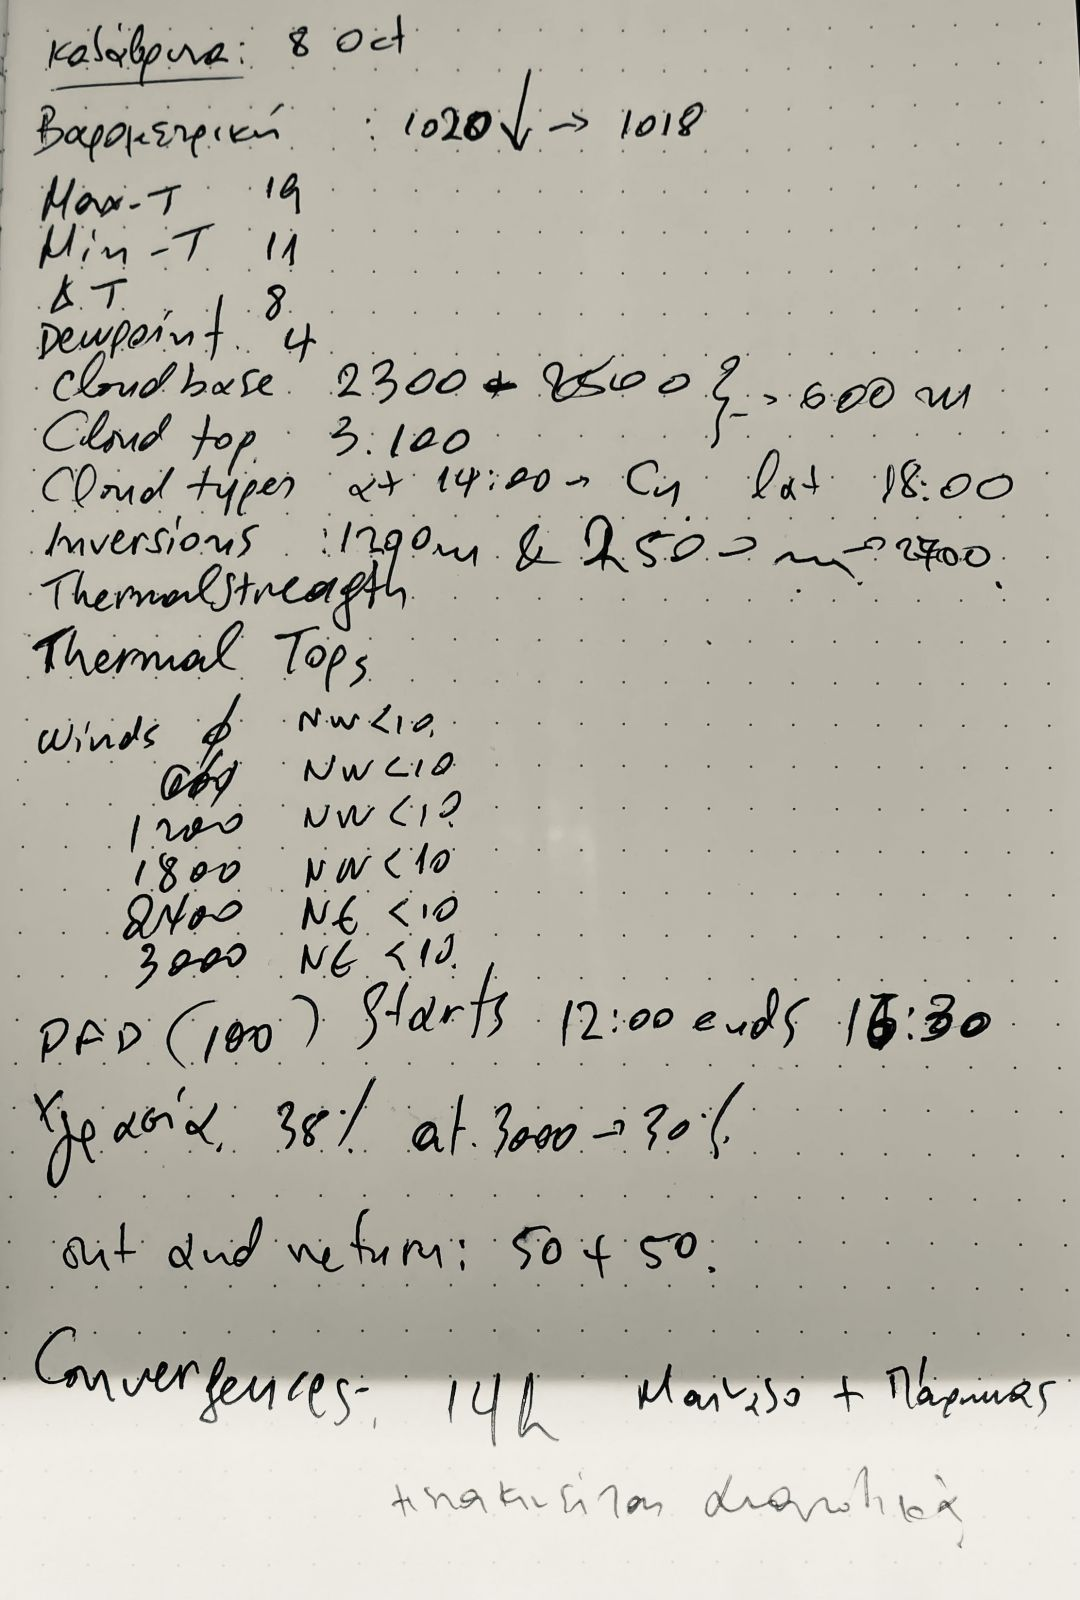 Καλάβρυτα: 8 Oct
Βαρομετρική : 1020 ↓ → 1018
Max-T 19
Min-T 11
ΔT 8
Dewpoint 4
Cloudbase 2300 2500 } → 600 m
Cloud top 3.100
Cloud types at 14:00 → Cu 18:00
Inversions : 1200m & 2500 m → 2700
Thermal Strength
Thermal Tops
Winds φ NW <10
600 NW <10
1200 NW <10
1800 NW <10
2400 NE <10
3000 NE <10
PFD (100) starts 12:00 ends 16:30
Υγρασία 38% at 3000 → 30%
out and return: 50 + 50.
Convergences- 14h Μαίναλο + Πάρνωνας